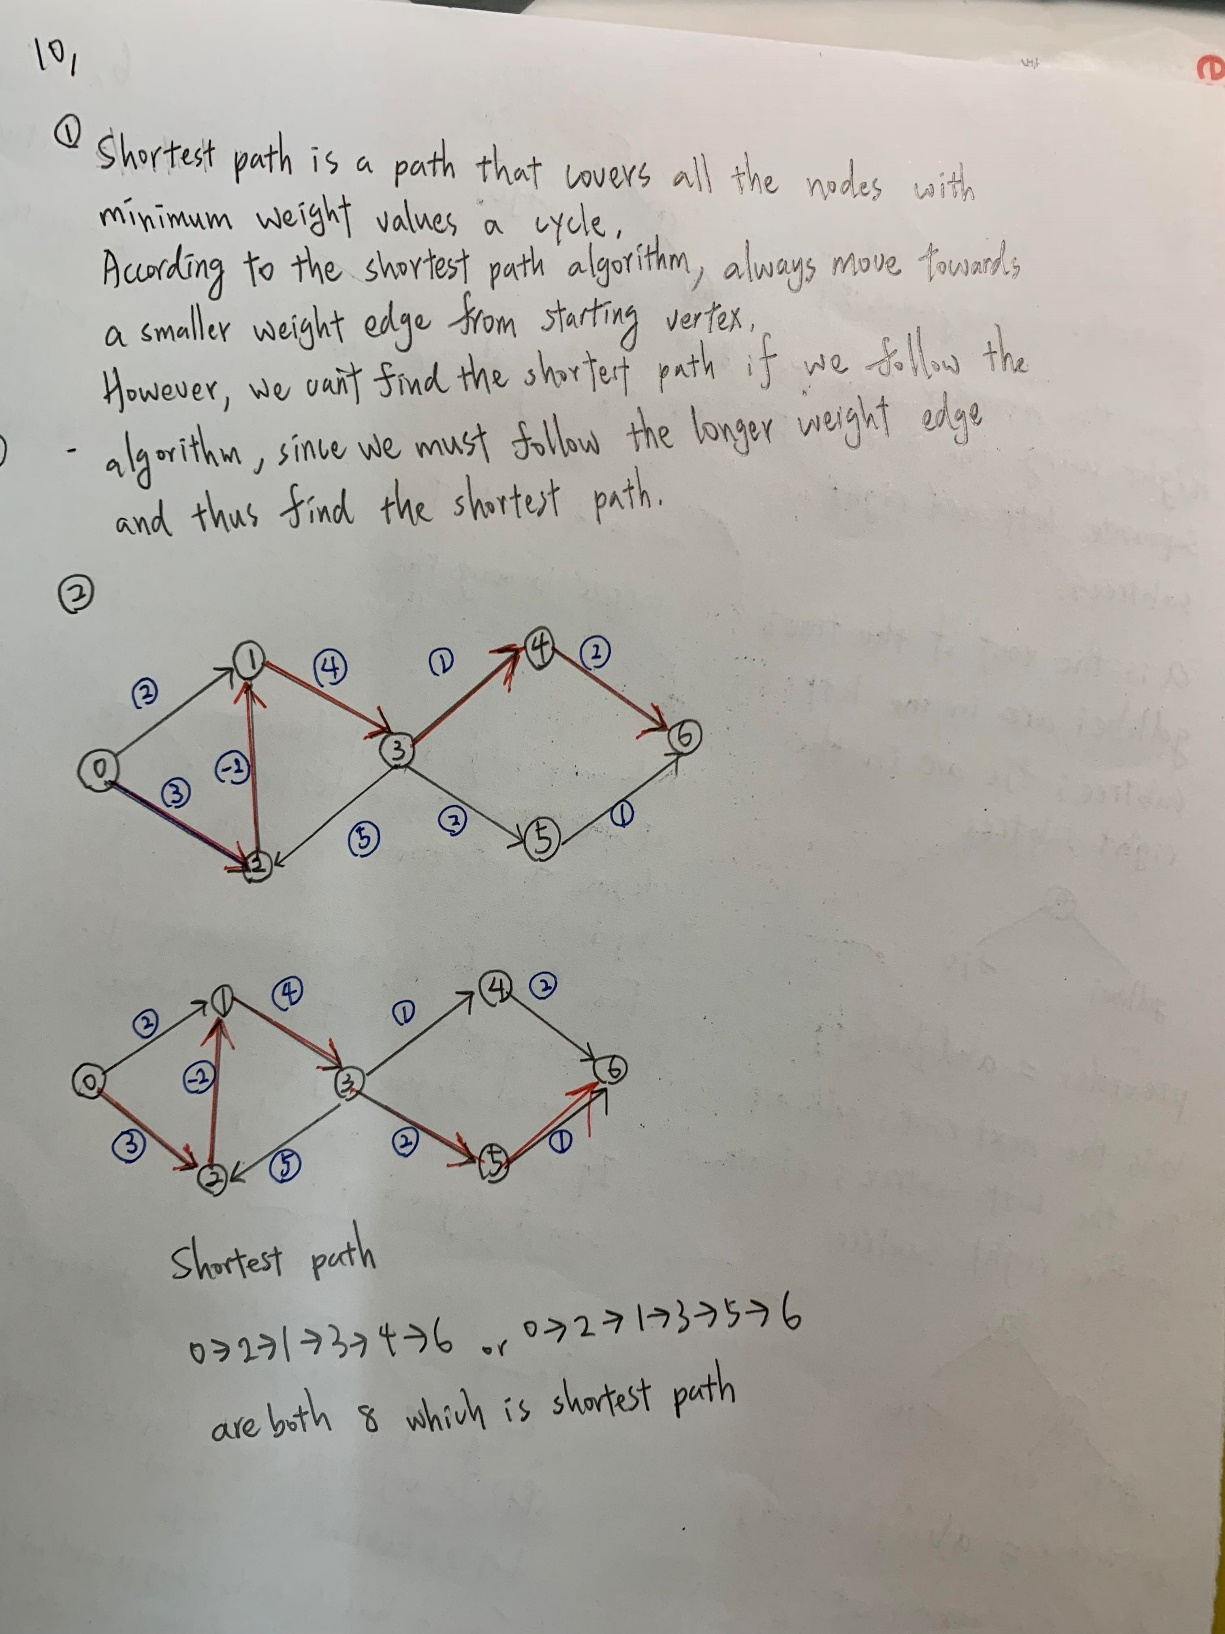 10,
① Shortest path is a path that covers all the nodes with
minimum weight values a cycle,
According to the shortest path algorithm, always move towards
a smaller weight edge from starting vertex,
However, we can't find the shortest path if we follow the
- algorithm, since we must follow the longer weight edge
and thus find the shortest path.
②
1 4 1 4 2
2
3 6
0 3 -2
5 2 1
2 5
1 4 1 4 2
2
0 -2 3 6
3 5 2 1
2 5
Shortest path
0→2→1→3→4→6 or 0→2→1→3→5→6
are both 8 which is shortest path